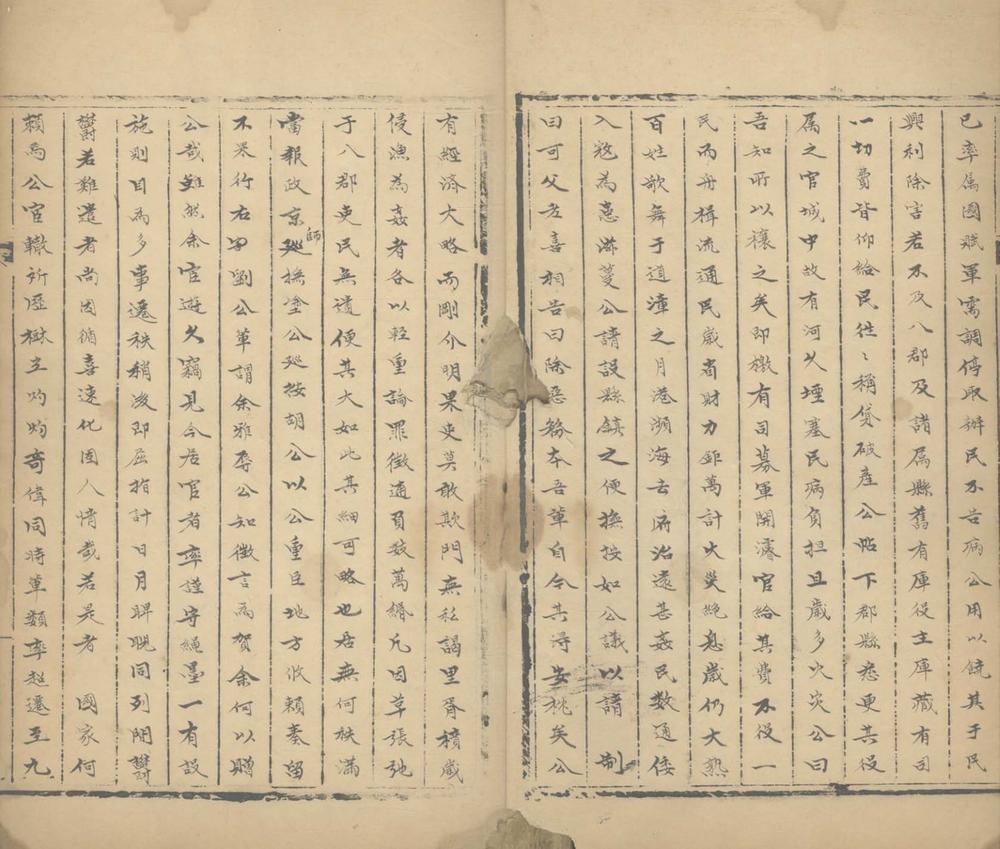 已率属國賦軍需調停取辦民不告病公用以饒其于民
興利除害若不及八郡及諸属縣舊有庫役主庫藏有司
一切費皆仰給民徃〻稱貸破產公帖下郡縣悉更其役
属之官城中故有河乆堙塞民病負担且歲多火灾公曰
吾知所以穰之矣即檄有司募軍開濬官給其費不役一
民而舟楫流通民歲省財力鉅萬計火灾絶息歲仍大熟
百姓歌舞于道漳之月港瀕海去府治遠甚姦民数通倭
入寇為患滋蔓公請設縣鎮之便撫按如公議以請 制
曰可父老喜相告曰除惡務本吾軰自今其得安枕矣公
有經濟大略而剛介明果吏莫敢欺門無私謁里胥積歲
侵漁為姦者各以輕重論罪徵逋負数萬緡凢因革張弛
于八郡吏民無遺便其大如此其細可略也居無何秩滿
當報政京師廵撫塗公廵按胡公以公重臣地方攸賴奏留
不果行右甸劉公軰謂余雅辱公知徵言為賀余何以贈
公哉雖然余宦遊久竊見今居官者率謹守繩墨一有設
施則目為多事遷秩稍淩即屈指計日月睥睨同列開釁
釁若難遣者尚因循喜速化固人情哉若是者 國家何
賴焉公宦轍所歴樹立灼灼奇偉同時軰類率超遷至九